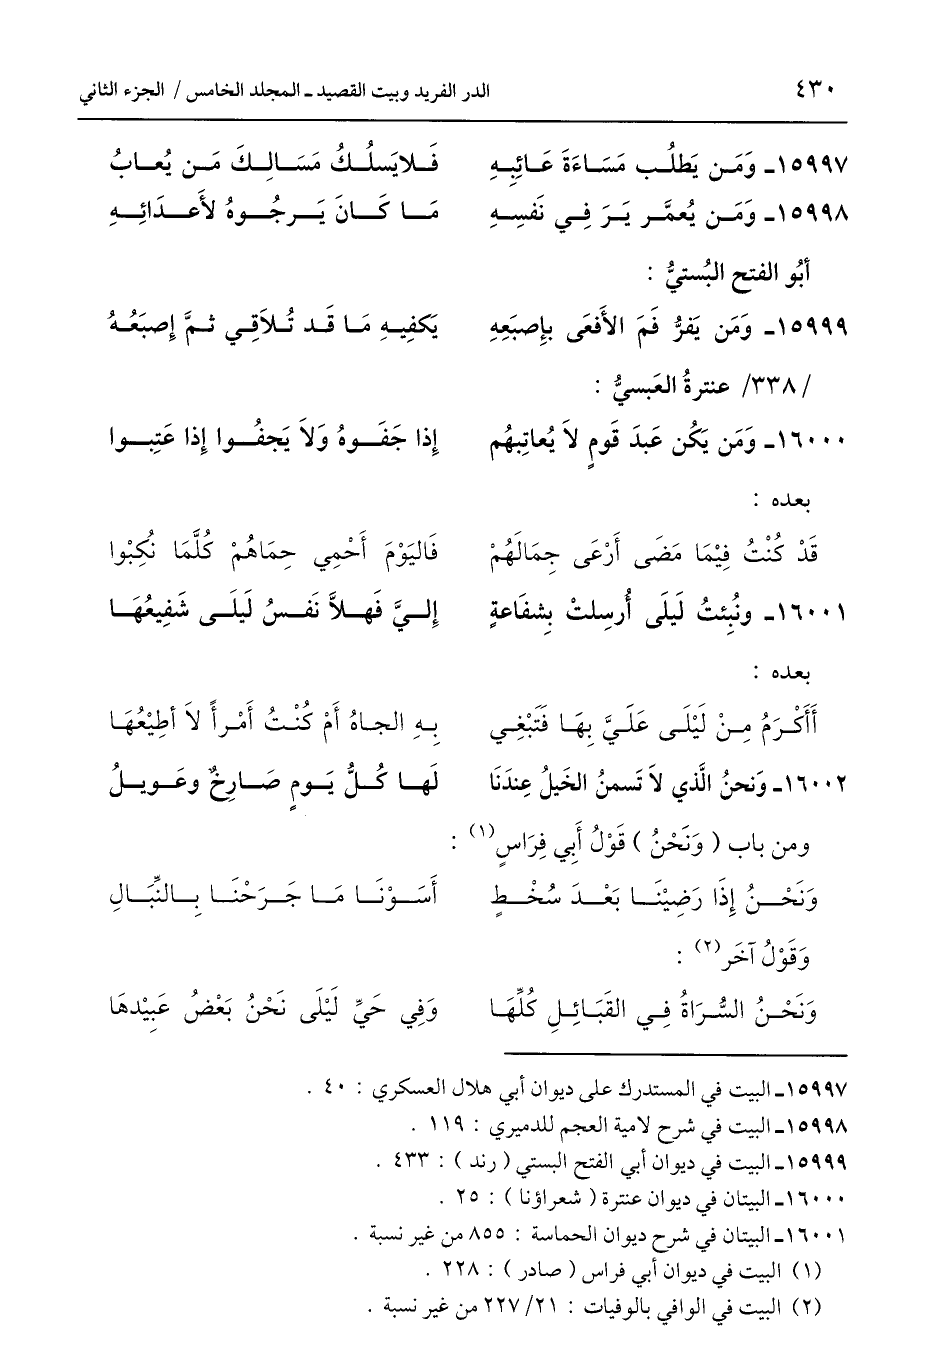 ٤٣٠ الدر الفريد وبيت القصيد ـ المجلد الخامس / الجزء الثاني
١٥٩٩٧ـ وَمَـن يَطلُـب مَسَاءَةَ عَـائِبِـهِ فَـلايَسلُـكُ مَسَـالِـكَ مَـن يُعـابُ
١٥٩٩٨ـ وَمَـن يُعمَّـر يَـرَ فِـي نَفسِـهِ مَـا كَـانَ يَـرجُـوهُ لأَعـدَائِـهِ
أَبُو الفتح البُستيُّ :
١٥٩٩٩ـ وَمَن يَفرُّ فَمَ الأَفعَى بإِصبَعِهِ يَكفِيهِ مَا قَد تُلاَقِي ثمَّ إصبَعُهُ
/٣٣٨/ عنترةُ العَبسيُّ :
١٦٠٠٠ـ وَمَن يَكُن عَبدَ قَومٍ لاَ يُعاتِبهُم إذا جَفَـوهُ وَلاَ يَجفُـوا إذا عَتِبـوا
بعده :
قَدْ كُنْتُ فِيْمَا مَضَى أَرْعَى جِمَالَهُمْ فَاليَوْمَ أَحْمِي حِمَاهُمْ كُلَّمَا نُكِبُوا
١٦٠٠١ـ ونُبِئتُ لَيلَى أُرسِلتْ بِشفَاعةٍ إليَّ فَهـلاَّ نَفـسُ لَيلَـى شَفيعُهَـا
بعده :
أَأَكْـرَمُ مِـنْ لَيْلَـى عَلَـيَّ بِهَـا فَتَبْغِـي بِـهِ الجـاهُ أَمْ كُنْـتُ أمْـرأً لاَ أطِيْعُهَـا
١٦٠٠٢ـ وَنحنُ الَّذي لاَ تَسمنُ الخَيلُ عِندَنَا لَهـا كُـلُّ يَـومٍ صَـارِخٌ وعَـويـلُ
ومن باب ( وَنَحْنُ ) قَوْلُ أَبِي فِرَاسٍ(١) :
وَنَحْـنُ إِذَا رَضِيْنَـا بَعْـدَ سُخْـطٍ أَسَـوْنَـا مَـا جَـرَحْنَـا بِـالنِّبَـالِ
وَقَوْلُ آخَر(٢) :
وَنَحْـنُ السُّـرَاةُ فِـي القَبَـائِـلِ كُلِّهَـا وَفِي حَيِّ لَيْلَى نَحْنُ بَعْضُ عَبِيْدهَا
١٥٩٩٧ـ البيت في المستدرك على ديوان أبي هلال العسكري : ٤٠ .
١٥٩٩٨ـ البيت في شرح لامية العجم للدميري : ١١٩ .
١٥٩٩٩ـ البيت في ديوان أبي الفتح البستي ( رند ) : ٤٣٣ .
١٦٠٠٠ـ البيتان في ديوان عنترة ( شعراؤنا ) : ٢٥ .
١٦٠٠١ـ البيتان في شرح ديوان الحماسة : ٨٥٥ من غير نسبة .
(١) البيت في ديوان أبي فراس ( صادر ) : ٢٢٨ .
(٢) البيت في الوافي بالوفيات : ٢٢٧/٢١ من غير نسبة .